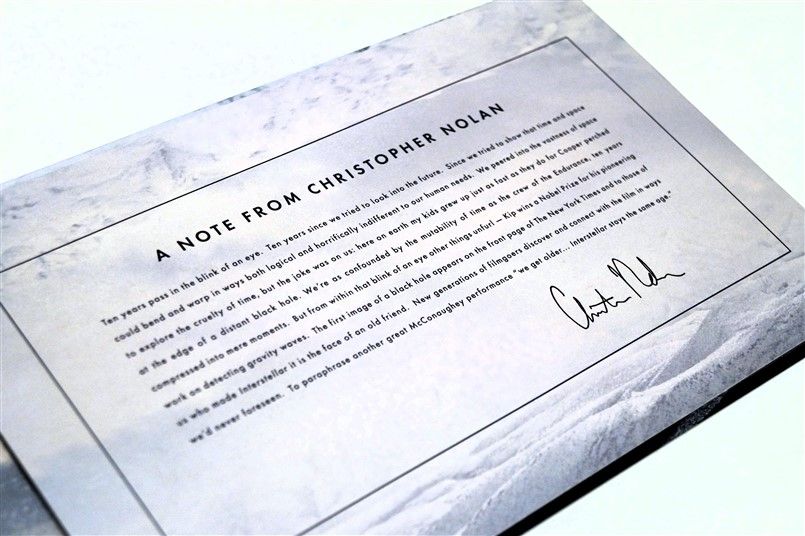 A NOTE FROM CHRISTOPHER NOLAN
Ten years pass in the blink of an eye. Ten years since we tried to look into the future. Since we tried to show that time and space
could bend and warp in ways both logical and horrifically indifferent to our human needs. We peered into the vastness of space
to explore the cruelty of time, but the joke was on us: here on earth my kids grew up just as fast as they do for Cooper perched
at the edge of a distant black hole. We're as confounded by the mutability of time as the crew of the Endurance, ten years
compressed into mere moments. But from within that blink of an eye other things unfurl – Kip wins a Nobel Prize for his pioneering
work on detecting gravity waves. The first image of a black hole appears on the front page of The New York Times and to those of
us who made Interstellar it is the face of an old friend. New generations of filmgoers discover and connect with the film in ways
we'd never foreseen. To paraphrase another great McConaughey performance "we get older.... Interstellar stays the same age."